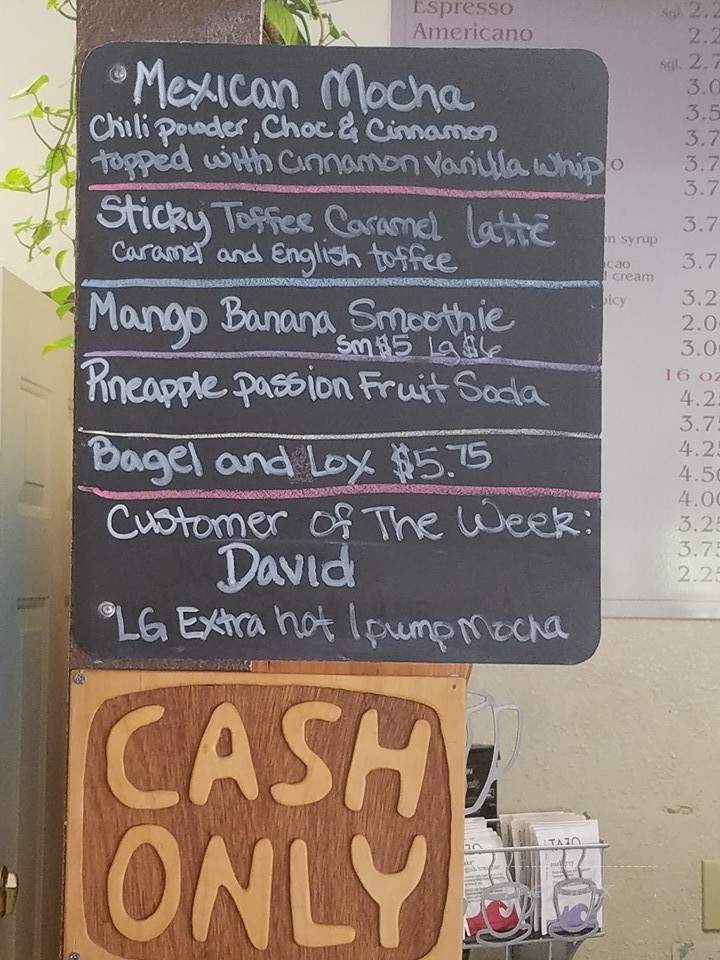 Mexican Mocha
Chili powder, Choc & Cinnamon
topped with Cinnamon Vanilla Whip
Sticky Toffee Caramel Latte
Caramel and English toffee
Mango Banana Smoothie
Sm $5 lg $6
Pineapple passion Fruit Soda
Bagel and Lox $5.75
Customer of The Week:
David
*LG Extra hot 1 pump Mocha
CASH
ONLY
Espresso
Americano
sgl.
syrup
cream
16 oz
TAZO